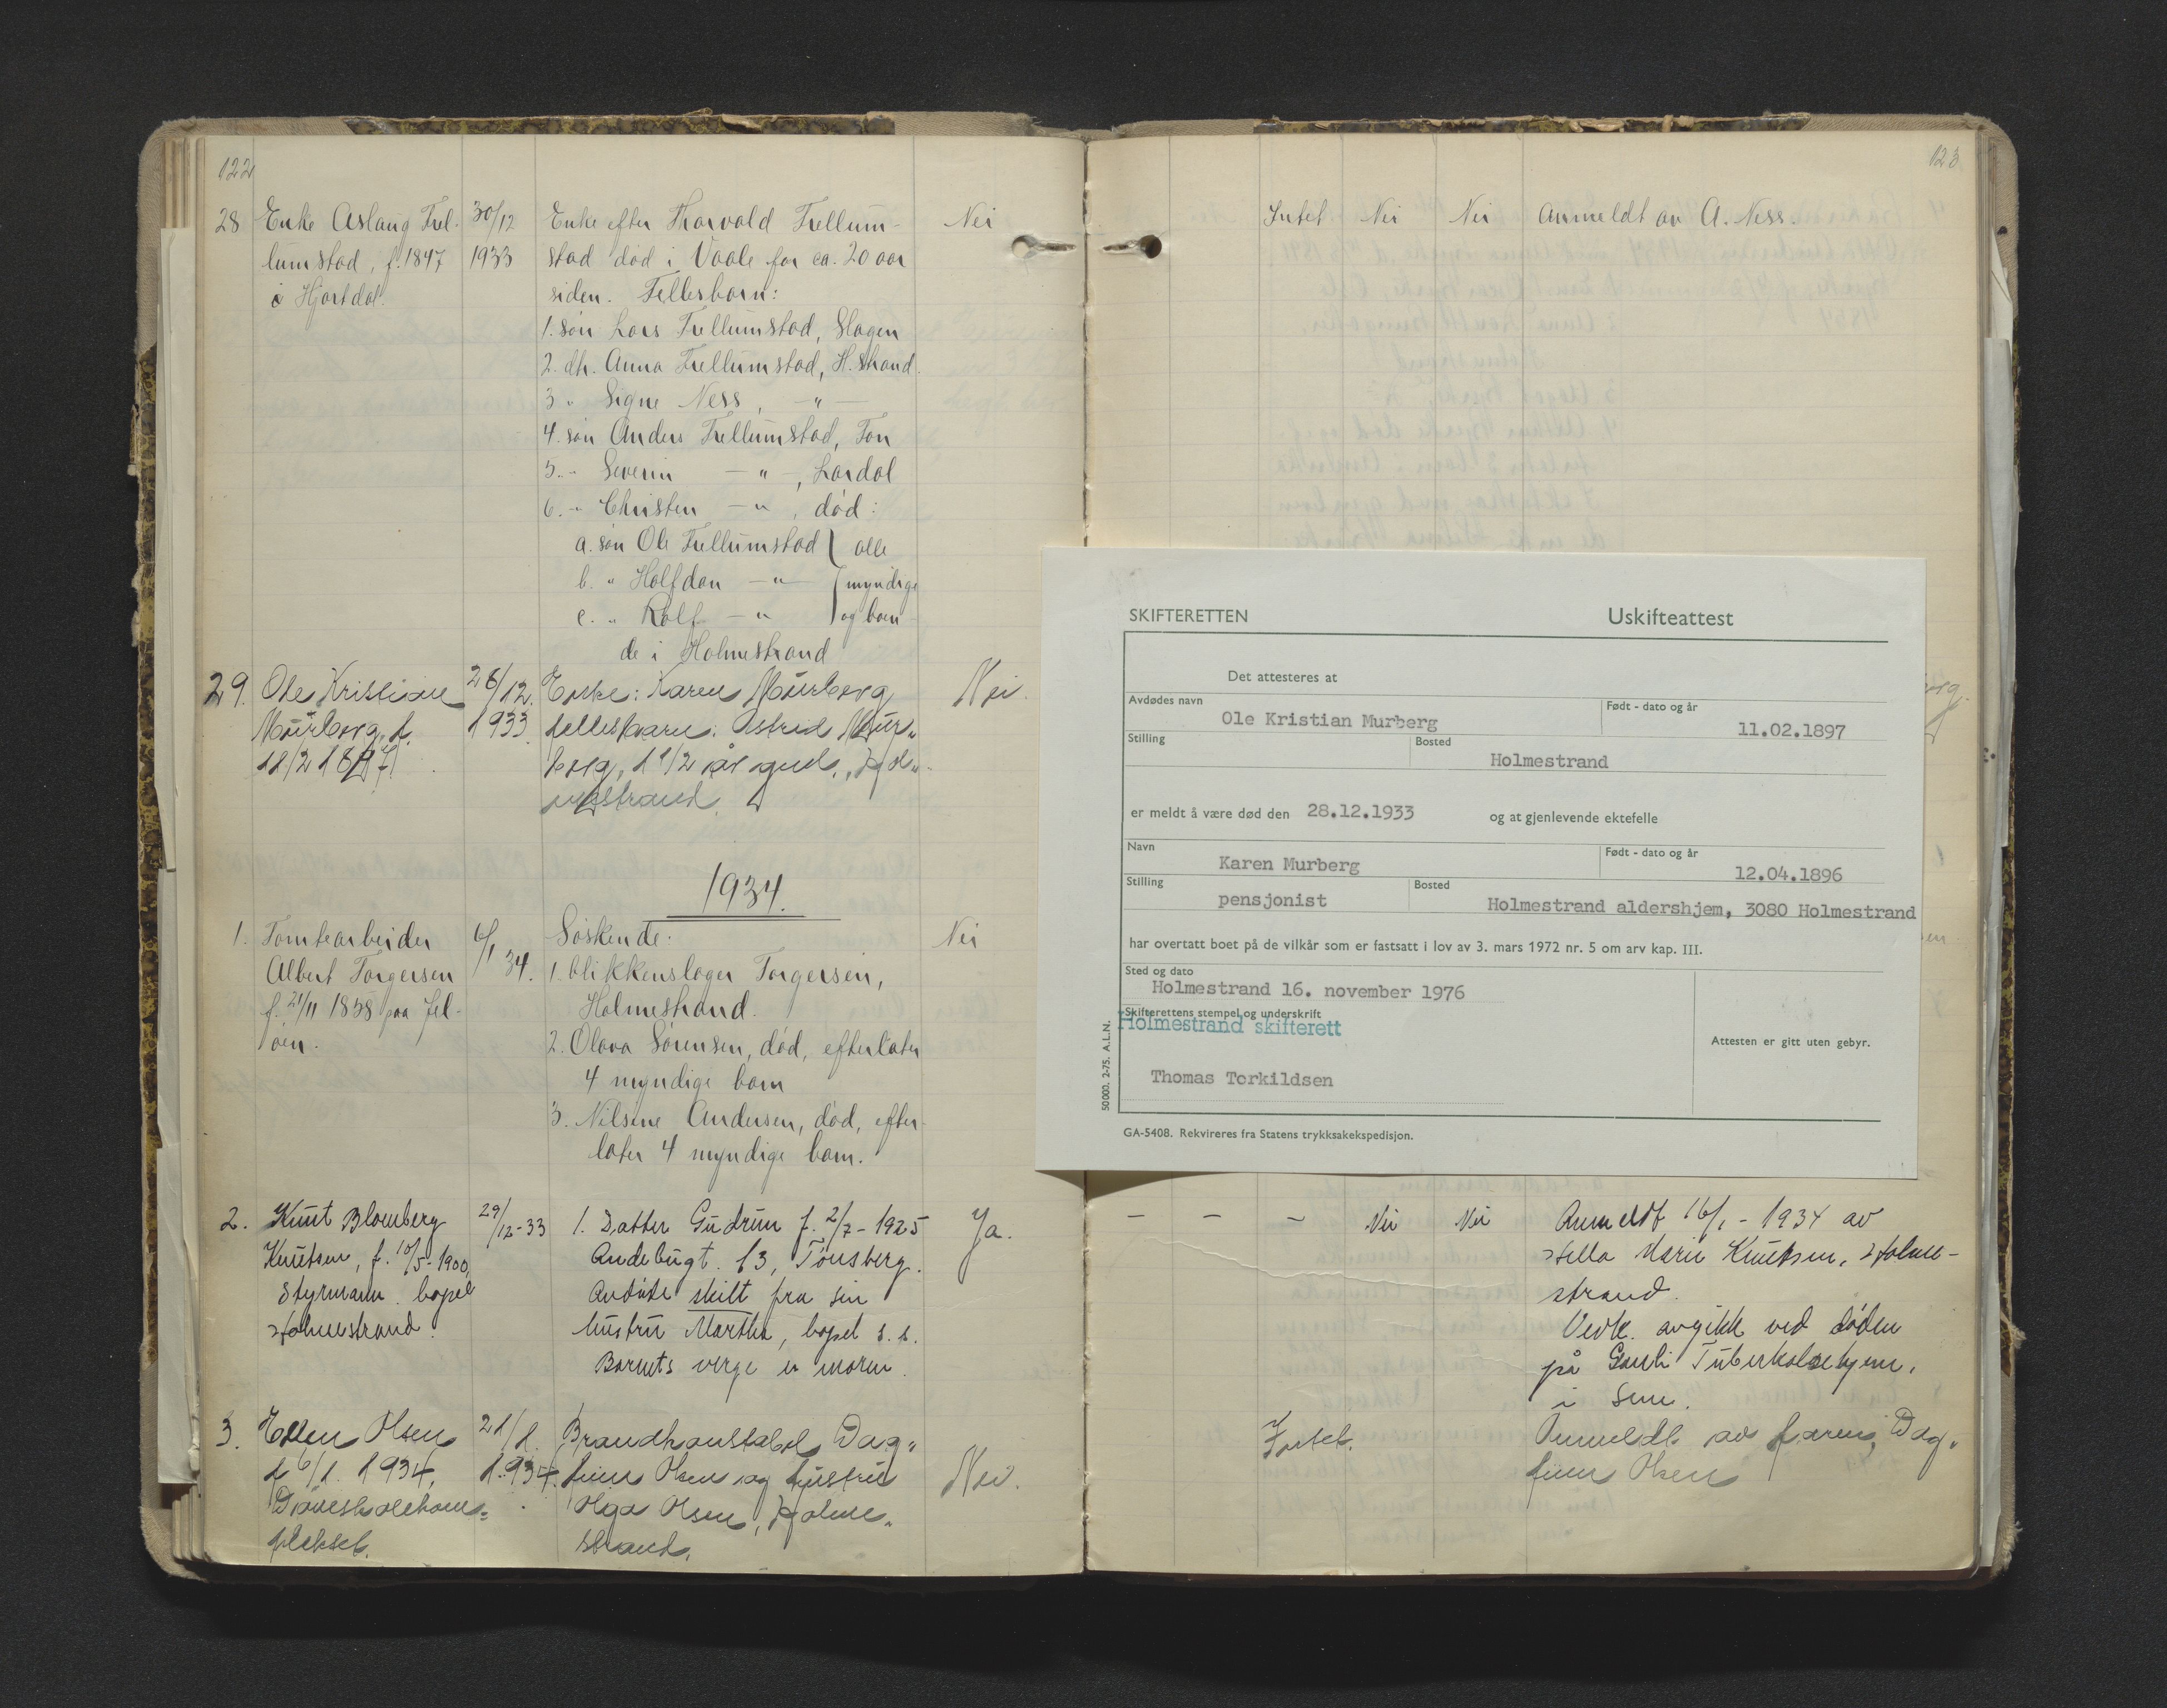 122
28 Enke Aslaug Trel-
lumstad, f. 1847
i Hjartdal.
30/12
1933
Enke efter Thorvald Trellum-
stad død i Vaale for ca. 20 aar
siden. Fellesbarn:
1. søn Lars Trellumstad, Slagen
2. dtr. Anna Trellumstad, H.strand.
3 " Signe Ness, — " —
4. søn Anders Trellumstad, Fon
5. " Severin — " —, Lardal
6. " Christen — " —, død:
a. søn Ole Trellumstad } alle
b. " Halfdan — " — } myndige
c. " Rolf — " — } og boen-
de i Holmestrand
Nei
29. Ole Kristian
Murberg, f.
11/2 1897
28/12.
1933.
Enke: Karen Murberg
Fellesbarn: Astrid Mur-
berg, 1 1/2 år gml., Hol-
mestrand.
Nei.
1934.
1. Tomtearbeider
Albert Torgersen
f. 21/11 1858 paa Jel-
øen.
6/1 34.
Søskende:
1. blikkenslager Torgersen,
Holmestrand.
2. Olava Sørensen, død, efterlater
4 myndige barn
3. Nilsine Andersen, død, efter-
later 4 myndige barn.
Nei
2. Knut Blomberg
Knutsen, f. 10/5-1900,
Styrmann. bopel
Holmestrand.
29/12-33
1. Datter Gudrun f. 2/7-1925
Andebugt. 13, Tønsberg.
Avdøde skilt fra sin
hustru Martha, bopel s.s.
Barnets verge er moren.
Ja.
3. Ellen Olsen
f. 6/1. 1934,
21/1.
1934.
Brandkonstabel Dag-
finn Olsen og hustru
Olga Olsen, Holme-
strand.
Nei.
123
Intet Nei Nei Anmeldt av A. Ness.
SKIFTERETTEN Uskifteattest
Det attesteres at
Avdødes navn Født - dato og år
Ole Kristian Murberg 11.02.1897
Stilling Bosted
Holmestrand
er meldt å være død den 28.12.1933 og at gjenlevende ektefelle
Navn Født - dato og år
Karen Murberg 12.04.1896
Stilling Bosted
pensjonist Holmestrand aldershjem, 3080 Holmestrand
har overtatt boet på de vilkår som er fastsatt i lov av 3. mars 1972 nr. 5 om arv kap. III.
Sted og dato
Holmestrand 16. november 1976
Skifterettens stempel og underskrift
Holmestrand skifterett
Attesten er gitt uten gebyr.
Thomas Torkildsen
50000. 2-75. A.L.N.
GA-5408. Rekvireres fra Statens trykksakekspedisjon.
— — — Nei Nei Anmeldt 16/1 - 1934 av
Marie Knutsen, Holme-
strand.
Vedk. avgikk ved døden
på Tuberkolosehjem,
i Sem.
Intet. Anmeldt av faren, Dag-
finn Olsen